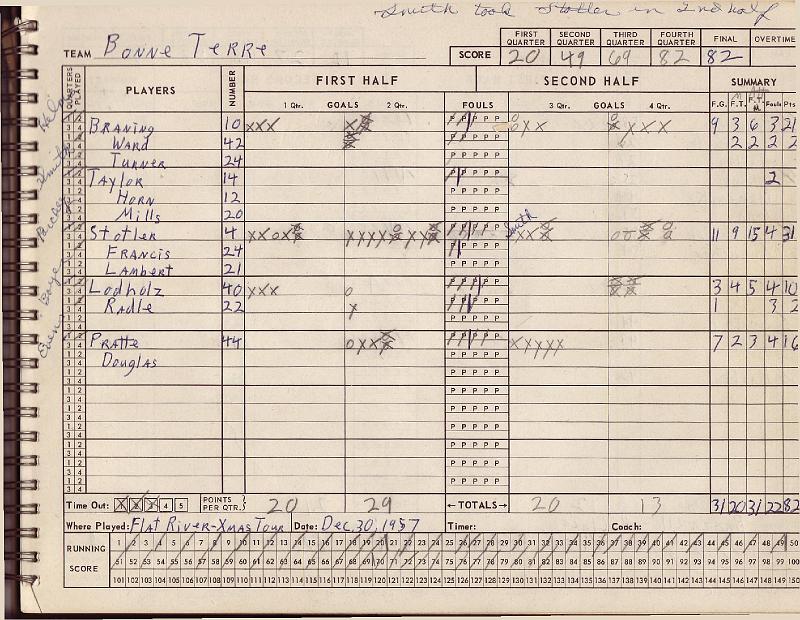 Smith took Stotler in 2nd half
FIRST QUARTER SECOND QUARTER THIRD QUARTER FOURTH QUARTER FINAL OVERTIME
TEAM BONNE TERRE SCORE 20 49 69 82 82
QUARTERS PLAYED PLAYERS NUMBER FIRST HALF SECOND HALF SUMMARY
1 Qtr. GOALS 2 Qtr. FOULS 3 Qtr. GOALS 4 Qtr. F.G. F.T. Fouls Pts
BRANING 10 9 3 6 3 21
WARD 42 2 2 2 2
TURNER 24
TAYLOR 14 2
HORN 12
MILLS 20
STOTLER 4 Smith 11 9 15 4 31
FRANCIS 24
LAMBERT 21
LODHOLZ 40 3 4 5 4 10
RADLE 22 1 3 2
PRATTE 44 7 2 3 4 16
DOUGLAS
Time Out: 1 2 3 4 5 POINTS PER QTR. 20 29 ←TOTALS→ 20 13 31 20 31 22 82
Where Played: FLAT RIVER-XMAS TOUR Date: DEC. 30, 1957 Timer: Coach:
RUNNING SCORE
1 2 3 4 5 6 7 8 9 10 11 12 13 14 15 16 17 18 19 20 21 22 23 24 25 26 27 28 29 30 31 32 33 34 35 36 37 38 39 40 41 42 43 44 45 46 47 48 49 50
51 52 53 54 55 56 57 58 59 60 61 62 63 64 65 66 67 68 69 70 71 72 73 74 75 76 77 78 79 80 81 82 83 84 85 86 87 88 89 90 91 92 93 94 95 96 97 98 99 100
101 102 103 104 105 106 107 108 109 110 111 112 113 114 115 116 117 118 119 120 121 122 123 124 125 126 127 128 129 130 131 132 133 134 135 136 137 138 139 140 141 142 143 144 145 146 147 148 149 150